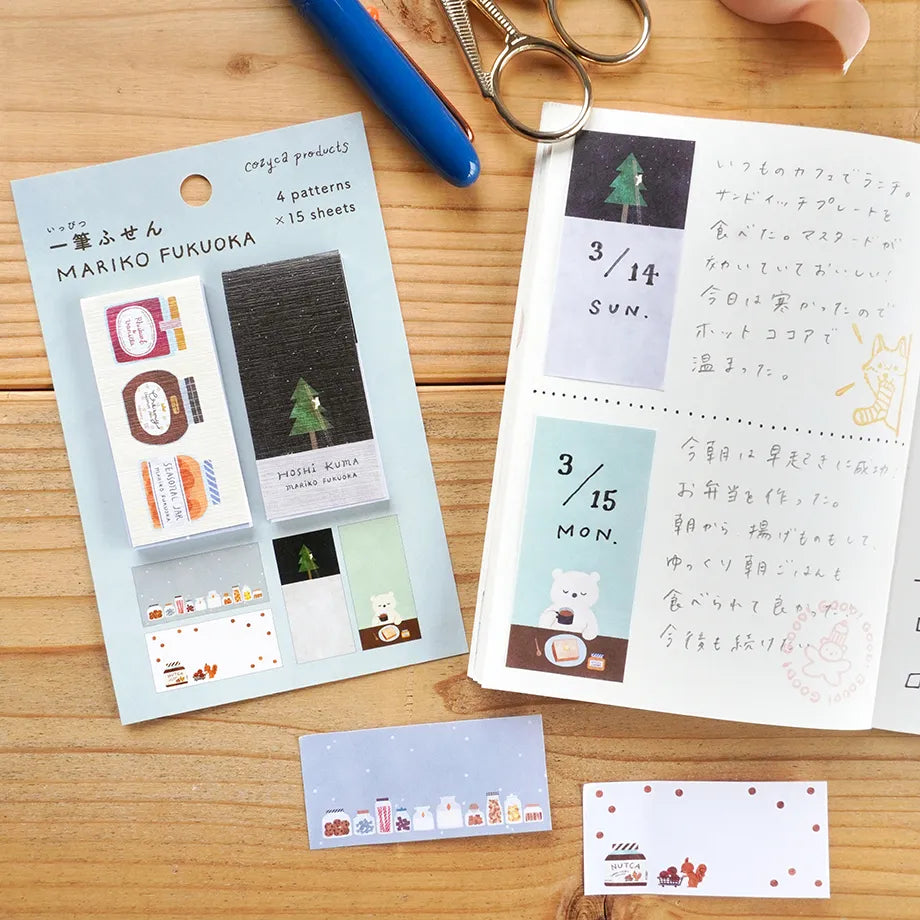 cozyca products
4 patterns
×15 sheets
いっぴつ
一筆ふせん
MARIKO FUKUOKA
Rhubarb
&
Vanilla
SEASONAL JAM
MARIKO FUKUOKA
HOSHI KUMA
MARIKO FUKUOKA
NUTCA
3/14
SUN.
いつものカフェでランチ。
サンドイッチプレートを
食べた。マスタードが
効いていておいしい!
今日は寒かったので
ホットココアで
温まった。
3/15
MON.
今朝は早起きに成功!
お弁当を作った。
朝から、揚げものもして、
ゆっくり朝ごはんも
食べられて良かった。
今後も続けたい
GOOD! GOOD! GOOD!
NUTCA